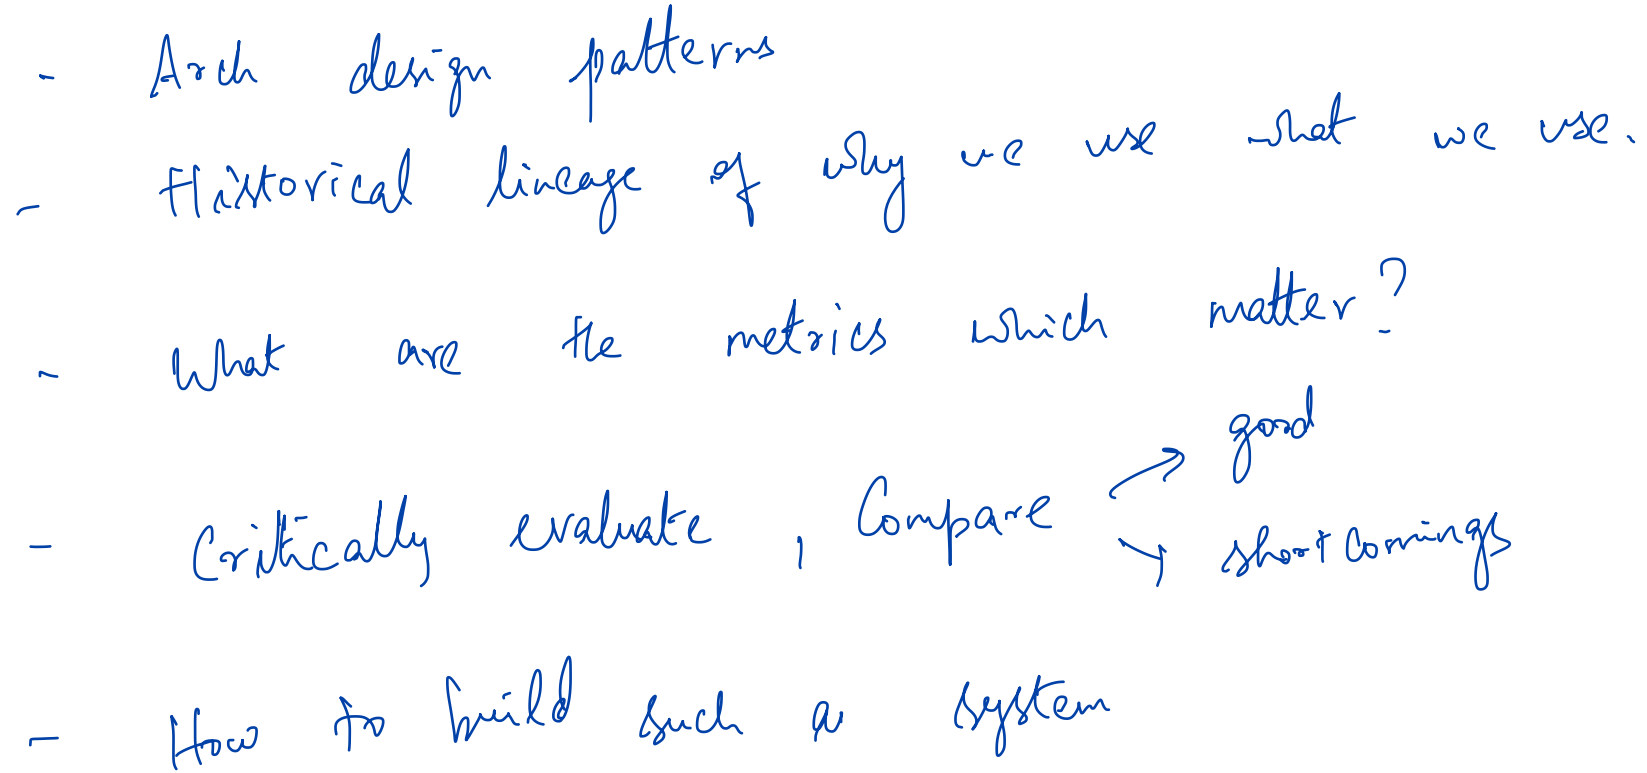 - Arch design patterns
- Historical lineage of why we use what we use.
- What are the metrics which matter?
- Critically evaluate, Compare → good
→ shortcomings
- How to build such a system